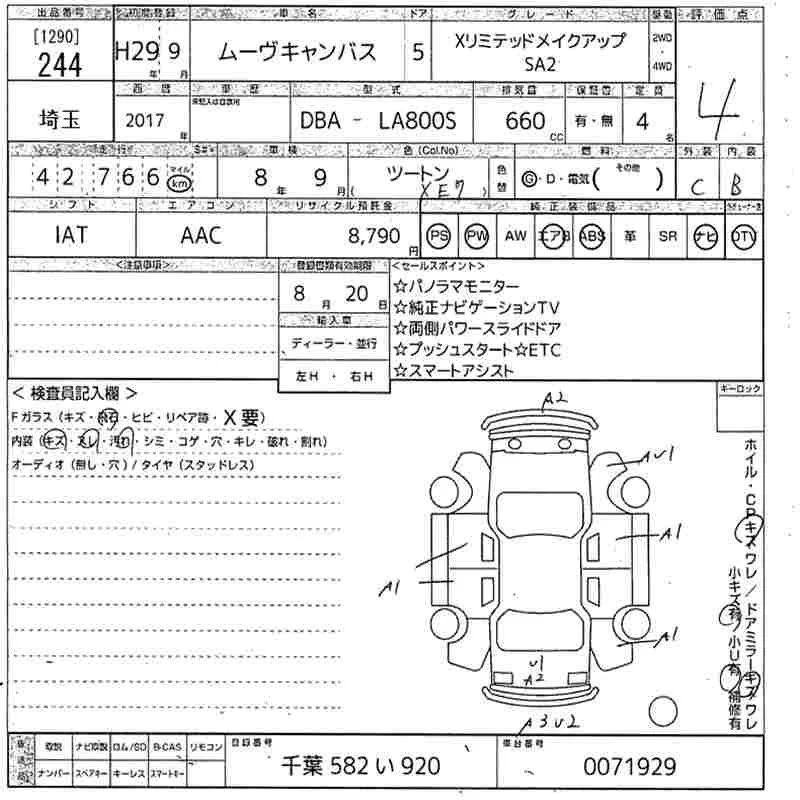 出品番号 初度登録 車名 ドア グレード 駆動 評価点
[1290]
244
H29年 9月
ムーヴキャンバス
5
Xリミテッドメイクアップ
SA2
2WD
・
4WD
4
西暦 車歴 型式 排気量 保証書 定員
未記入は自家用
埼玉 2017年 DBA - LA800S 660CC 有・無 4名
走行 S#* 車検 色(Col.No) 燃料 外装 内装
42766 マイル km
8年 9月
ツートン
(XE7)
色替
G・D・電気( その他 )
C B
シフト エアコン リサイクル預託金 純正装備品
IAT AAC 8,790円 PS PW AW エアB ABS 革 SR ナビ DTV
<注意事項> 登録書類有効期限 <セールスポイント>
8月 20日
輸入車
ディーラー・並行
左H ・ 右H
☆パノラマモニター
☆純正ナビゲーションTV
☆両側パワースライドドア
☆プッシュスタート☆ETC
☆スマートアシスト
< 検査員記入欄 >
Fガラス (キズ・飛石・ヒビ・リペア跡・X要)
内装 (キズ・スレ・汚れ・シミ・コゲ・穴・キレ・破れ・割れ)
オーディオ (無し・穴) / タイヤ (スタッドレス)
キーロック
A2
AU1
A1
A1
A1
U1
A2
A3 U2
ホイル・CPキズワレ/ドアミラーキズ・ワレ
小キズ有・小U有・補修有
後送品
取説 ナビ取説 ロム/SD B-CAS リモコン
ナンバー スペアキー キーレス スマートキー
登録番号
千葉 582 い 920
車台番号
0071929